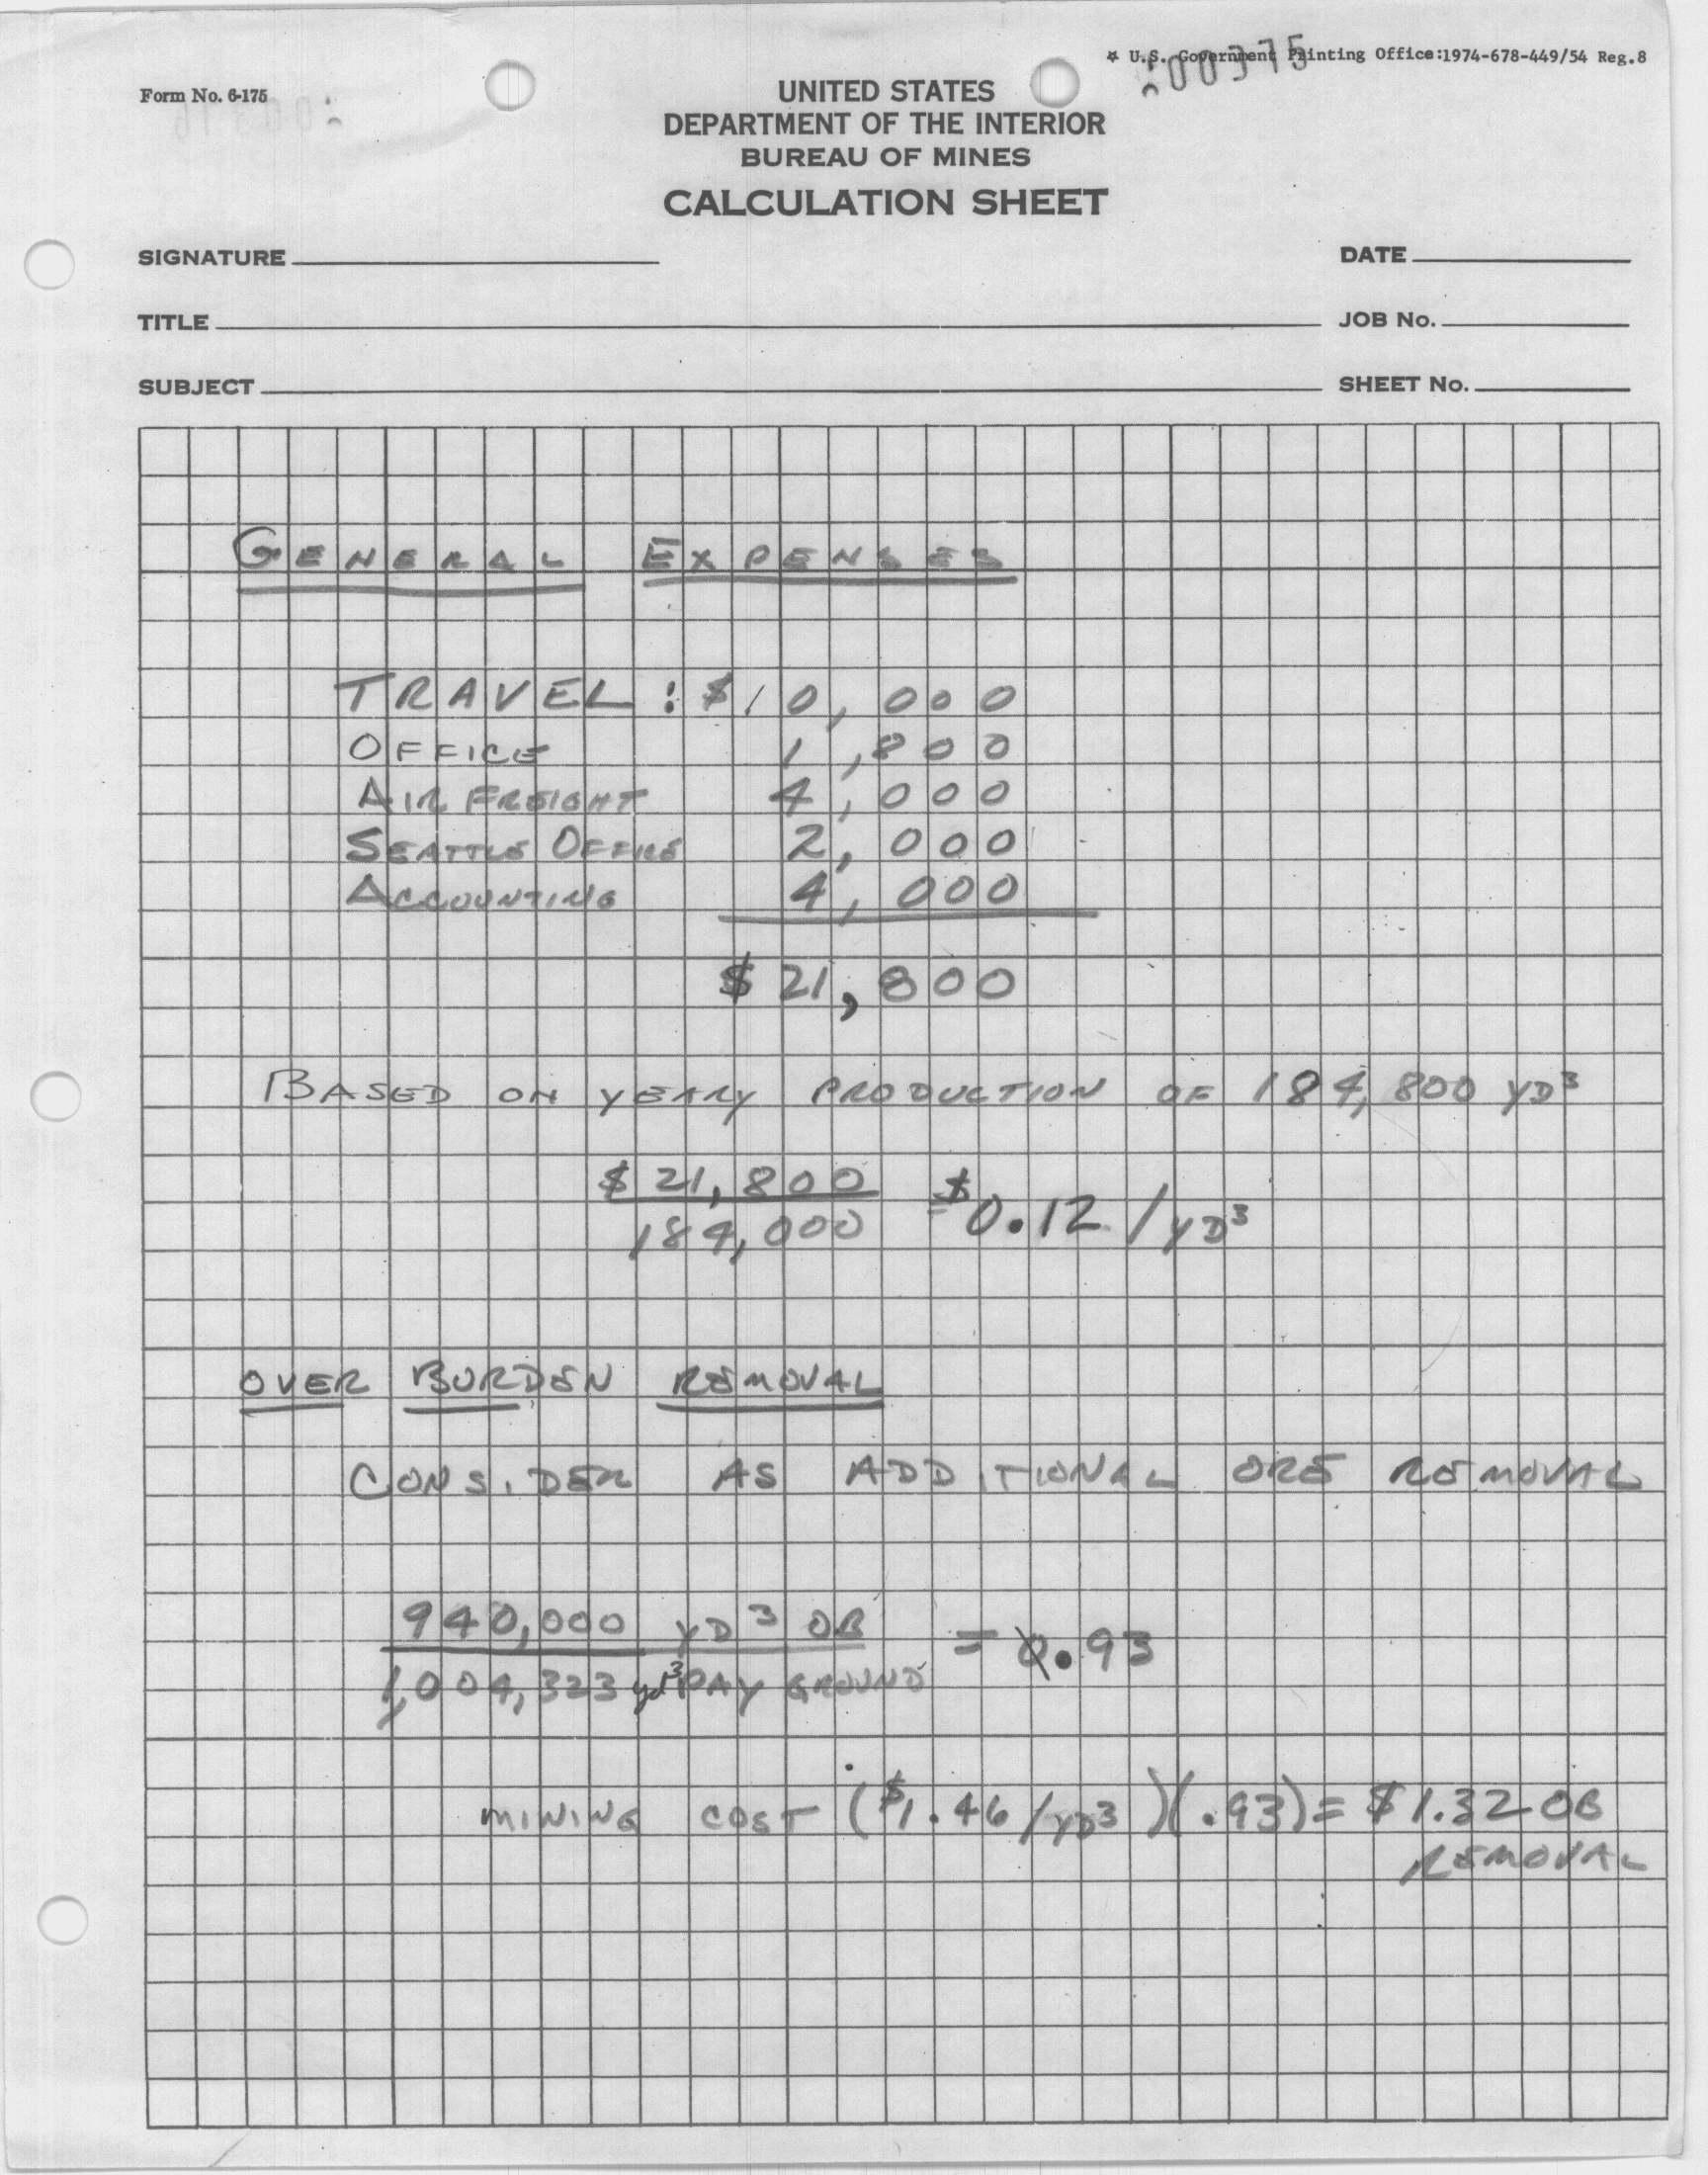 ☆ U.S. Government Printing Office:1974-678-449/54 Reg.8
000375
Form No. 6-175
UNITED STATES
DEPARTMENT OF THE INTERIOR
BUREAU OF MINES
CALCULATION SHEET
SIGNATURE
DATE
TITLE
JOB No.
SUBJECT
SHEET No.
GENERAL EXPENSES
TRAVEL: $10,000
OFFICE 1,800
AIR FREIGHT 4,000
SEATTLE OFFICE 2,000
ACCOUNTING 4,000
$21,800
BASED ON YEARLY PRODUCTION OF 184,800 YD³
$21,800
184,000
= $0.12/YD³
OVER BURDEN REMOVAL
CONSIDER AS ADDITIONAL ORE REMOVAL
940,000 YD³ OB
1,004,323 yd³ PAY GROUND
= 0.93
MINING COST ($1.46/YD³)(.93) = $1.32 OB
REMOVAL